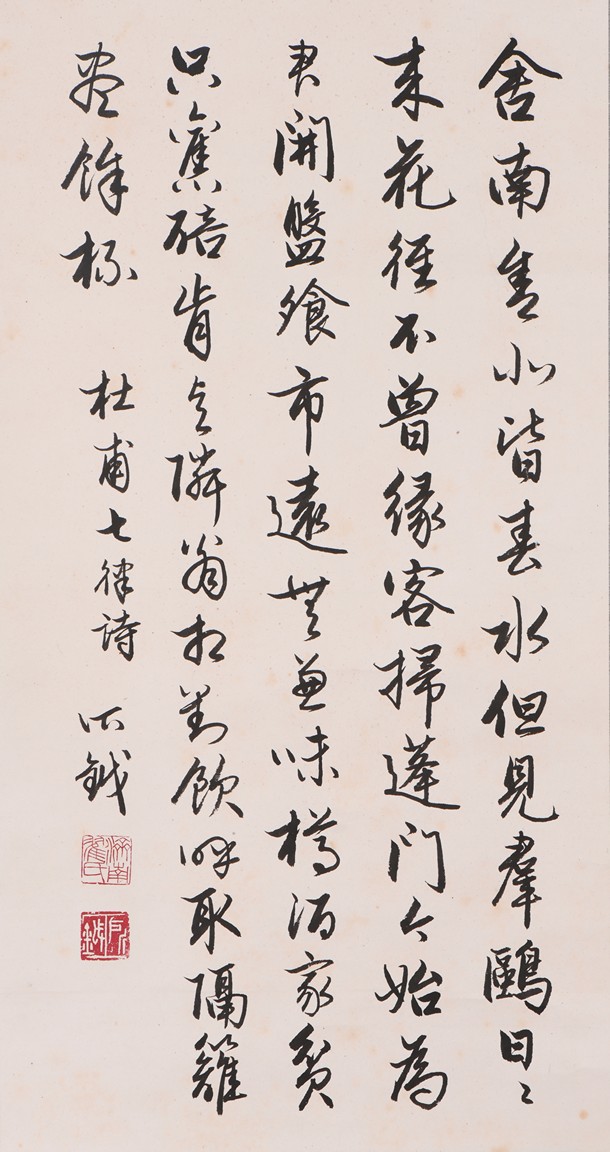 舍南舍北皆春水但見羣鷗日〻
來花徑不曾緣客掃蓬門今始為
君開盤飱市遠無兼味樽酒家貧
只舊醅肯與隣翁相對飲呼取隔籬
盡餘杯 杜甫七律詩 所鉞
所鉞